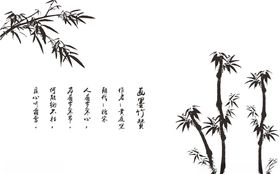 画墨竹赞
作者—黄庭坚
朝代—北宋
人有岁寒心，
乃有岁寒节。
何能貌不枯，
虚心听霜雪。